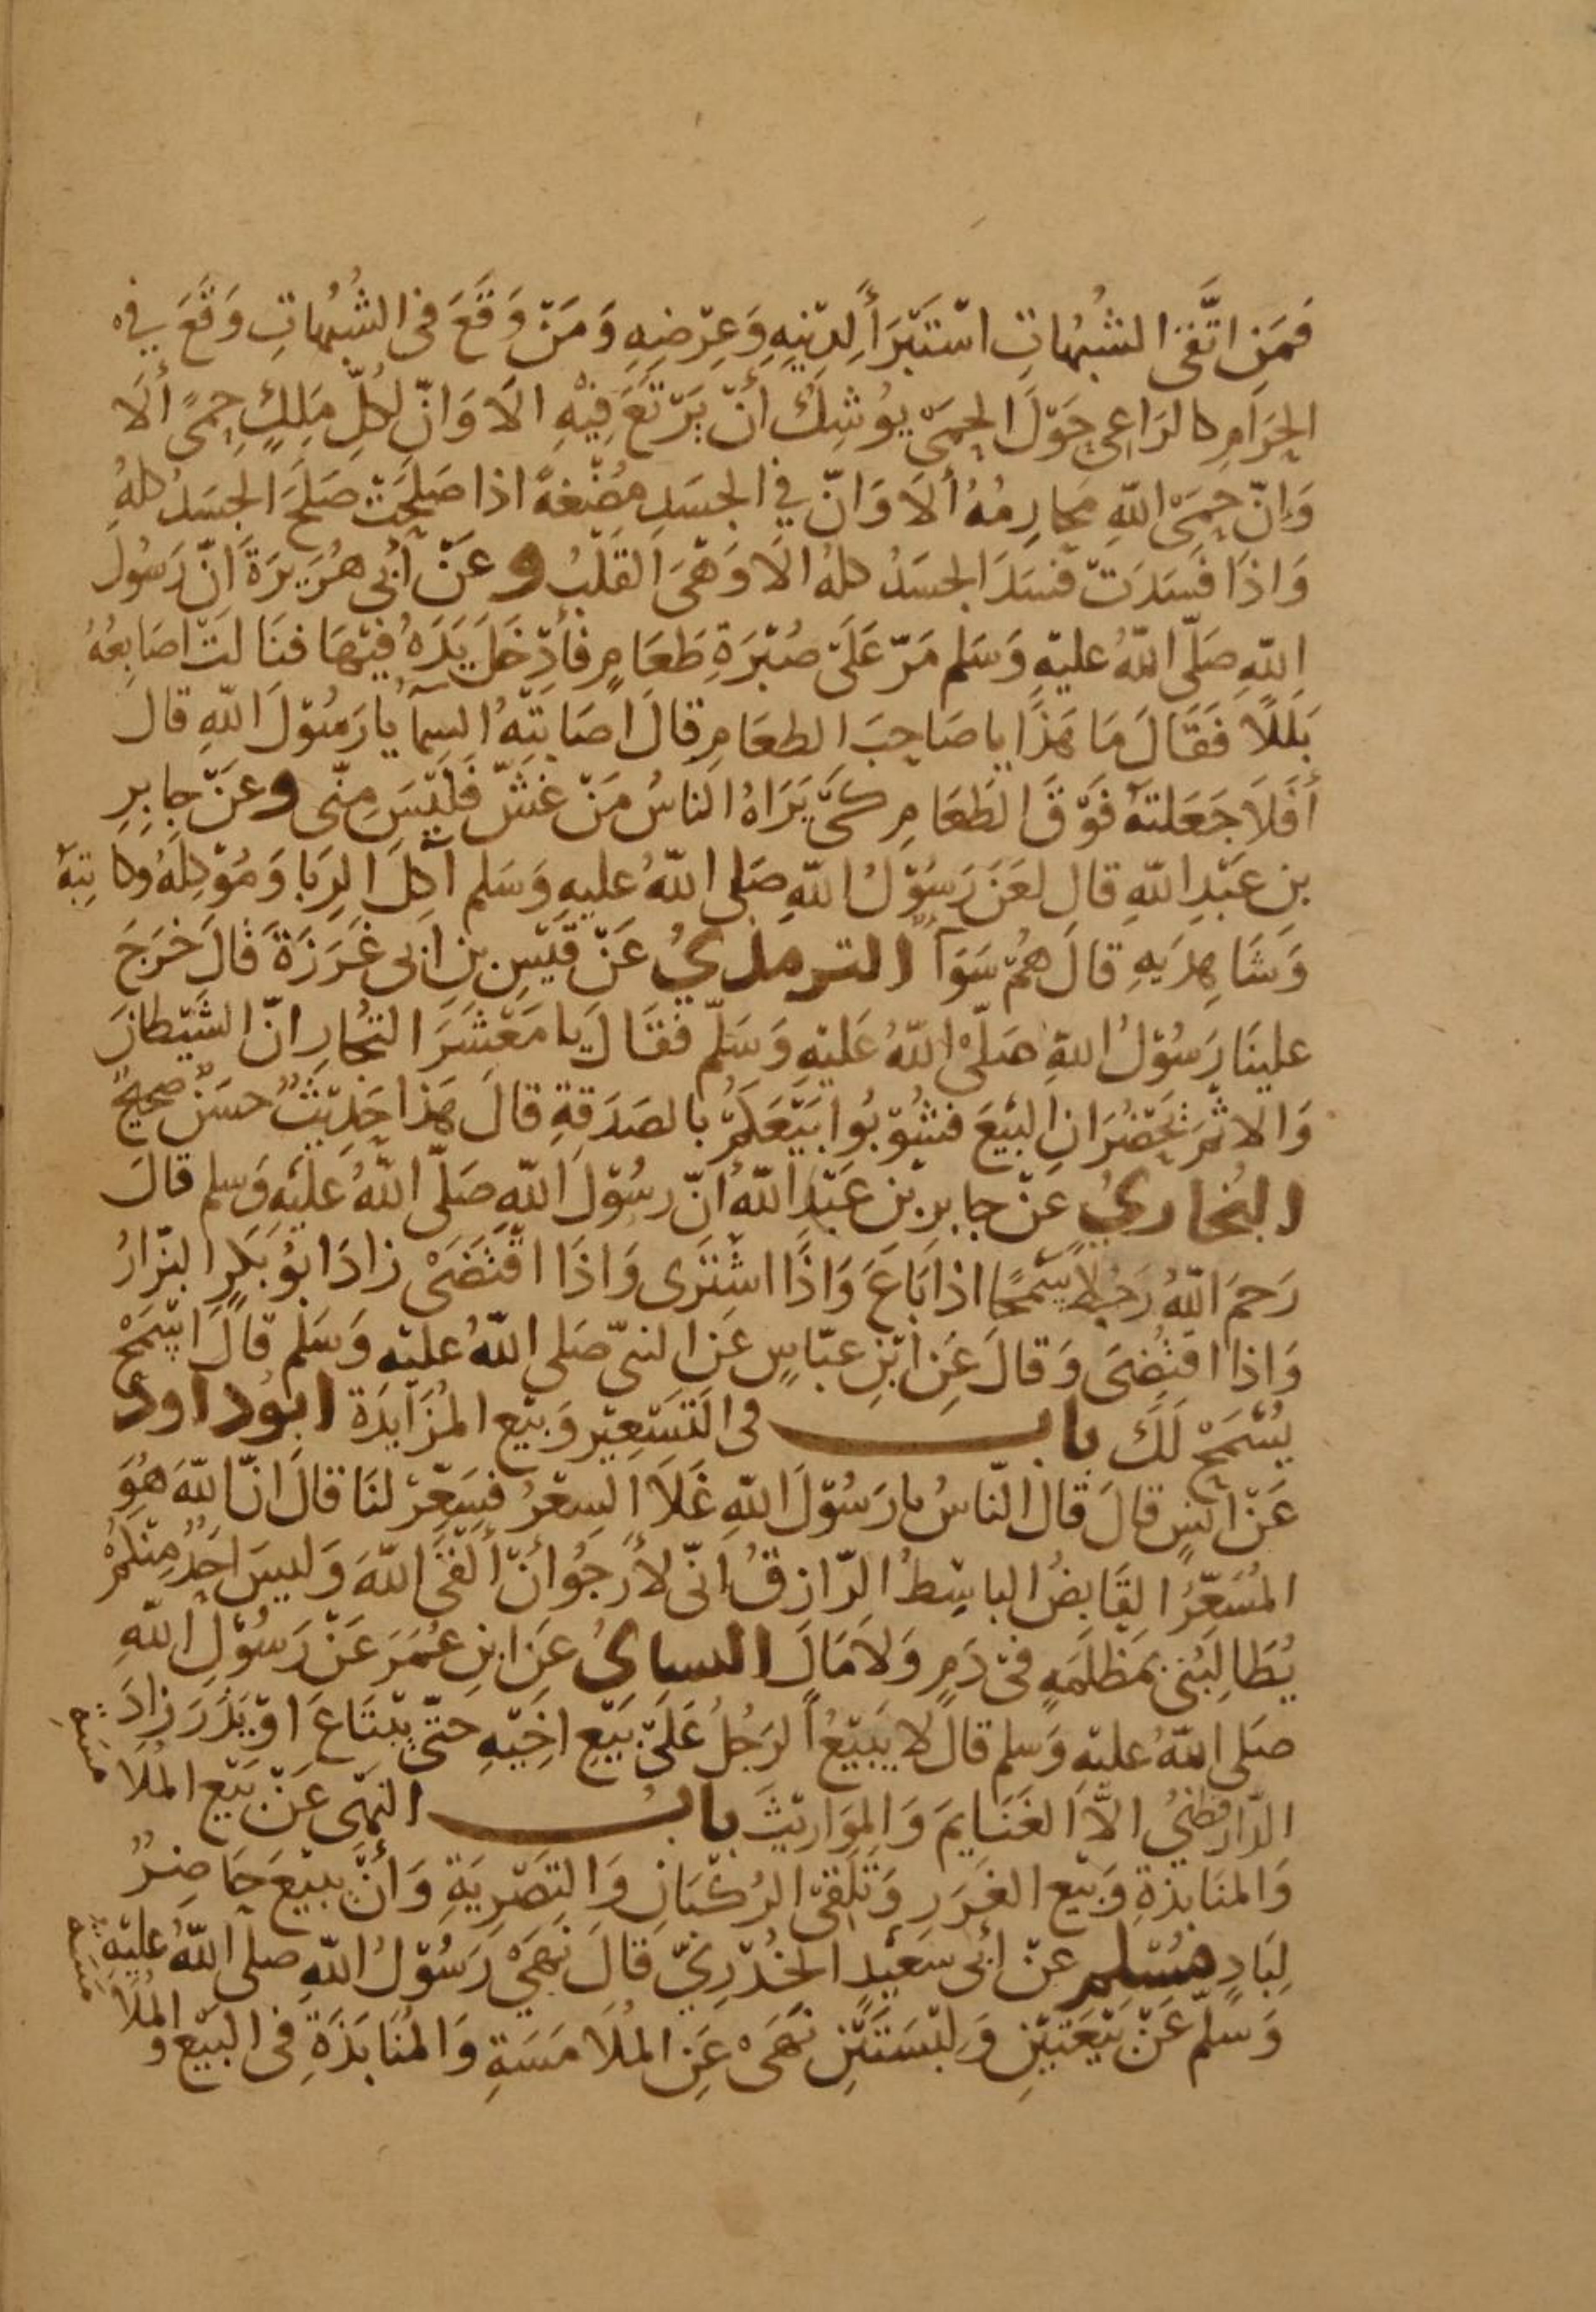 فَمَنِ اتَّقَى الشُبُهاتِ اسْتَبْرَأَ لِدِيْنِهِ وَعِرْضِهِ وَمَنْ وَقَعَ فى الشُبُهاتِ وَقَعَ فى
الحَرَامِ كالرَاعِى حَوْلَ الحِمَى يُوشِكُ أنْ يَرْتَعَ فِيْهِ الاَ وَانّ لكُلِّ مَلِكٍ حِمًى ألاَ
وَإنّ حِمَى اللهِ مَحَارِمُهُ ألاَ وَانّ في الجسَدِ مُضْغَةً اذا صَلحَتْ صَلحَ الجسَدُ كلهُ
وَاذَا فَسَدَتْ فسَدَ الجسَدُ كلهُ الاَ وَهْىَ القَلْبُ وعَنْ أبى هُرَيرَةَ انّ رَسُولَ
اللهِ صَلّى اللهُ عليْهِ وَسَلم مَرّ عَلَى صُبْرَةِ طَعَامٍ فأدْخَلَ يَدَهُ فيْهَا فنَالَتْ اصَابِعُهُ
بَلَلاً فَقَالَ مَا هَذَا يا صَاحِبَ الطعَامِ قالَ اصَابَتْهُ السمآ يا رَسُوْلَ اللهِ قالَ
أفَلاَ جَعَلتَهُ فَوْقَ الطَعَامِ كَىْ يَرَاهُ الناسُ مَنْ غشّ فَليْسَ مِنّى وعَنْ جابِرِ
بنِ عَبْدِ اللهِ قال لعَنَ رَسُوْلُ اللهِ صَلى اللهُ عليهِ وَسَلم آكِلَ الرِبَا وَمُوْكِلَهُ وكاتِبَهُ
وَشَاهِدَيهِ قالَ هُمْ سَوَآً الترمذيُ عَنْ قَيْسِ بنِ ابى غَرَزَةَ قَالَ خَرَجَ
علينَا رَسُوْلُ اللهِ صَلّى اللهُ عَليْهِ وَسَلّم فقَالَ يا مَعْشَرَ التُجَّارِ انّ الشيْطانَ
وَالاثْمَ يَحْضُرَانِ البَيْعَ فشُوْبُوا بَيْعَكُمْ بالصَدَقةِ قالَ هَذا حَدِيْثٌ حسَنٌ صَحِيحٌ
البُخاريُ عَنْ جابرِ بْنِ عَبْدِ اللهُ انّ رسُوْلَ اللهِ صَلّى اللهُ عليْهِ وَسلم قالَ
رَحمَ اللهُ رَجُلاً سَمْحًا اذا بَاعَ وَاذَا اشْتَرَى وَاذَا اقْتَضَىْ زادَ ابُوْ بَكرٍ البزّارُ
وَاذا اقتُضِىَ وَقالَ عَنِ ابْنِ عبّاسٍ عَنِ النبىّ صَلى اللهُ عليْهِ وَسَلم قالَ اسْمَحْ
يُسْمَحْ لَكَ باب فى التَسْعِيْرِ وَبَيْعِ المُزَايَدَةِ ابُوْ دَاودَ
عَنْ انَسٍ قالَ قالَ النّاسُ يا رَسُوْلَ اللهِ غَلاَ السِعْرُ فسَعّرْ لنَا قالَ انّ اللهَ هُوَ
المُسَعّرُ القَابِضُ الباسِطُ الرّازقُ انّى لأرْجُوا أنْ ألْقَى اللهَ وَليسَ احَدٌ مِنْكمْ
يُطَالِبُنى بمَظلَمَةٍ فىْ دَمٍ وَلاَ مَالٍ النساىُ عَنِ ابنِ عُمَرَ عَنْ رَسُوْلِ اللهِ
صَلى اللهُ عليْهِ وَسلم قالَ لا يَبيْعُ الرَجُلُ عَلَىْ بَيْعِ اخِيْهِ حَتّى يبْتَاعَ اوْ يَذَرَ زادَ
الدّارقطنيُ الاّ الغَنَايمَ وَالمَوَاريْثَ بابُ النهْى عَنْ بَيْعِ المُلاَ
مَسَةِ
وَالمنَابذةِ وَبَيْعِ الغَرَرِ وَتَلقّى الرُكْبَانِ وَالتَصْرِيَةِ وَأنْ يبيْعَ حَاضِرٌ
لِبَادٍ مُسْلم عَنْ أبى سَعيْدٍ الخُدْرِيّ قالَ نَهَىْ رَسُوْلُ اللهِ صلى اللهُ عليْهِ
وَسَلّم عَنْ بَيْعَتَيْنِ وَلبْسَتَيْنِ نَهَىْ عَنِ المُلاَمَسَةِ وَالمُنَابَذَةِ فى البَيْعِ و المُلاَ
مَسَةِ